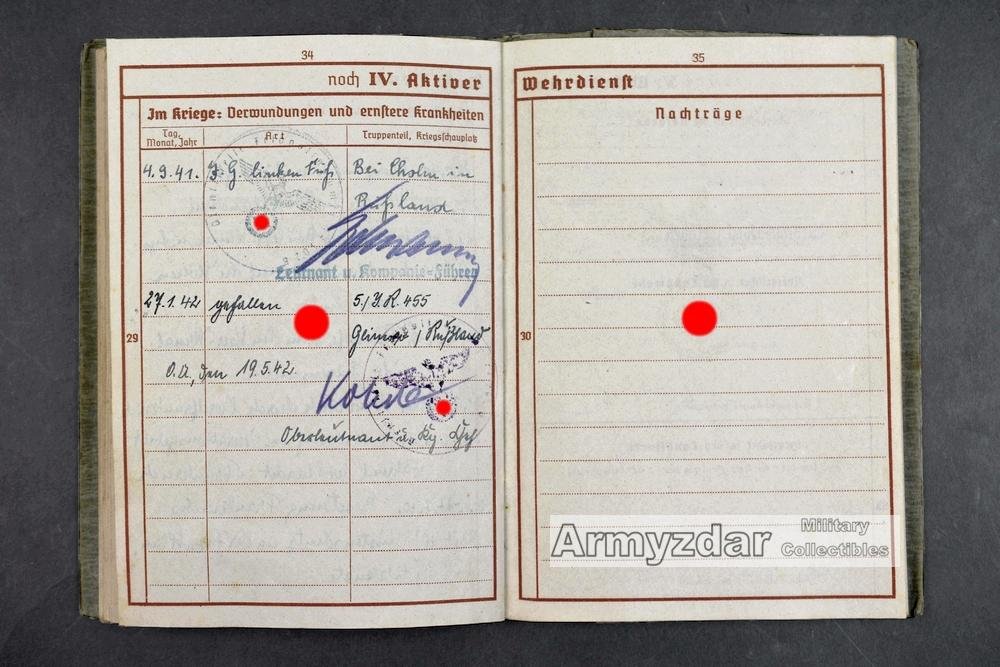 34
noch IV. Aktiver
Im Kriege: Verwundungen und ernstere Krankheiten
Tag, Monat, Jahr
Art
Truppenteil, Kriegsschauplatz
4.9.41. I.G. linken Fuß Bei Cholm in
Rußland
Leutnant u. Kompanie-Führer
27.1.42 gefallen 5./I.R. 455
29
/ Rußland
O.U., den 19.5.42.
Oberleutnant u. Kp. Chef
35
Wehrdienst
Nachträge
30
Armyzdar Military
Collectibles